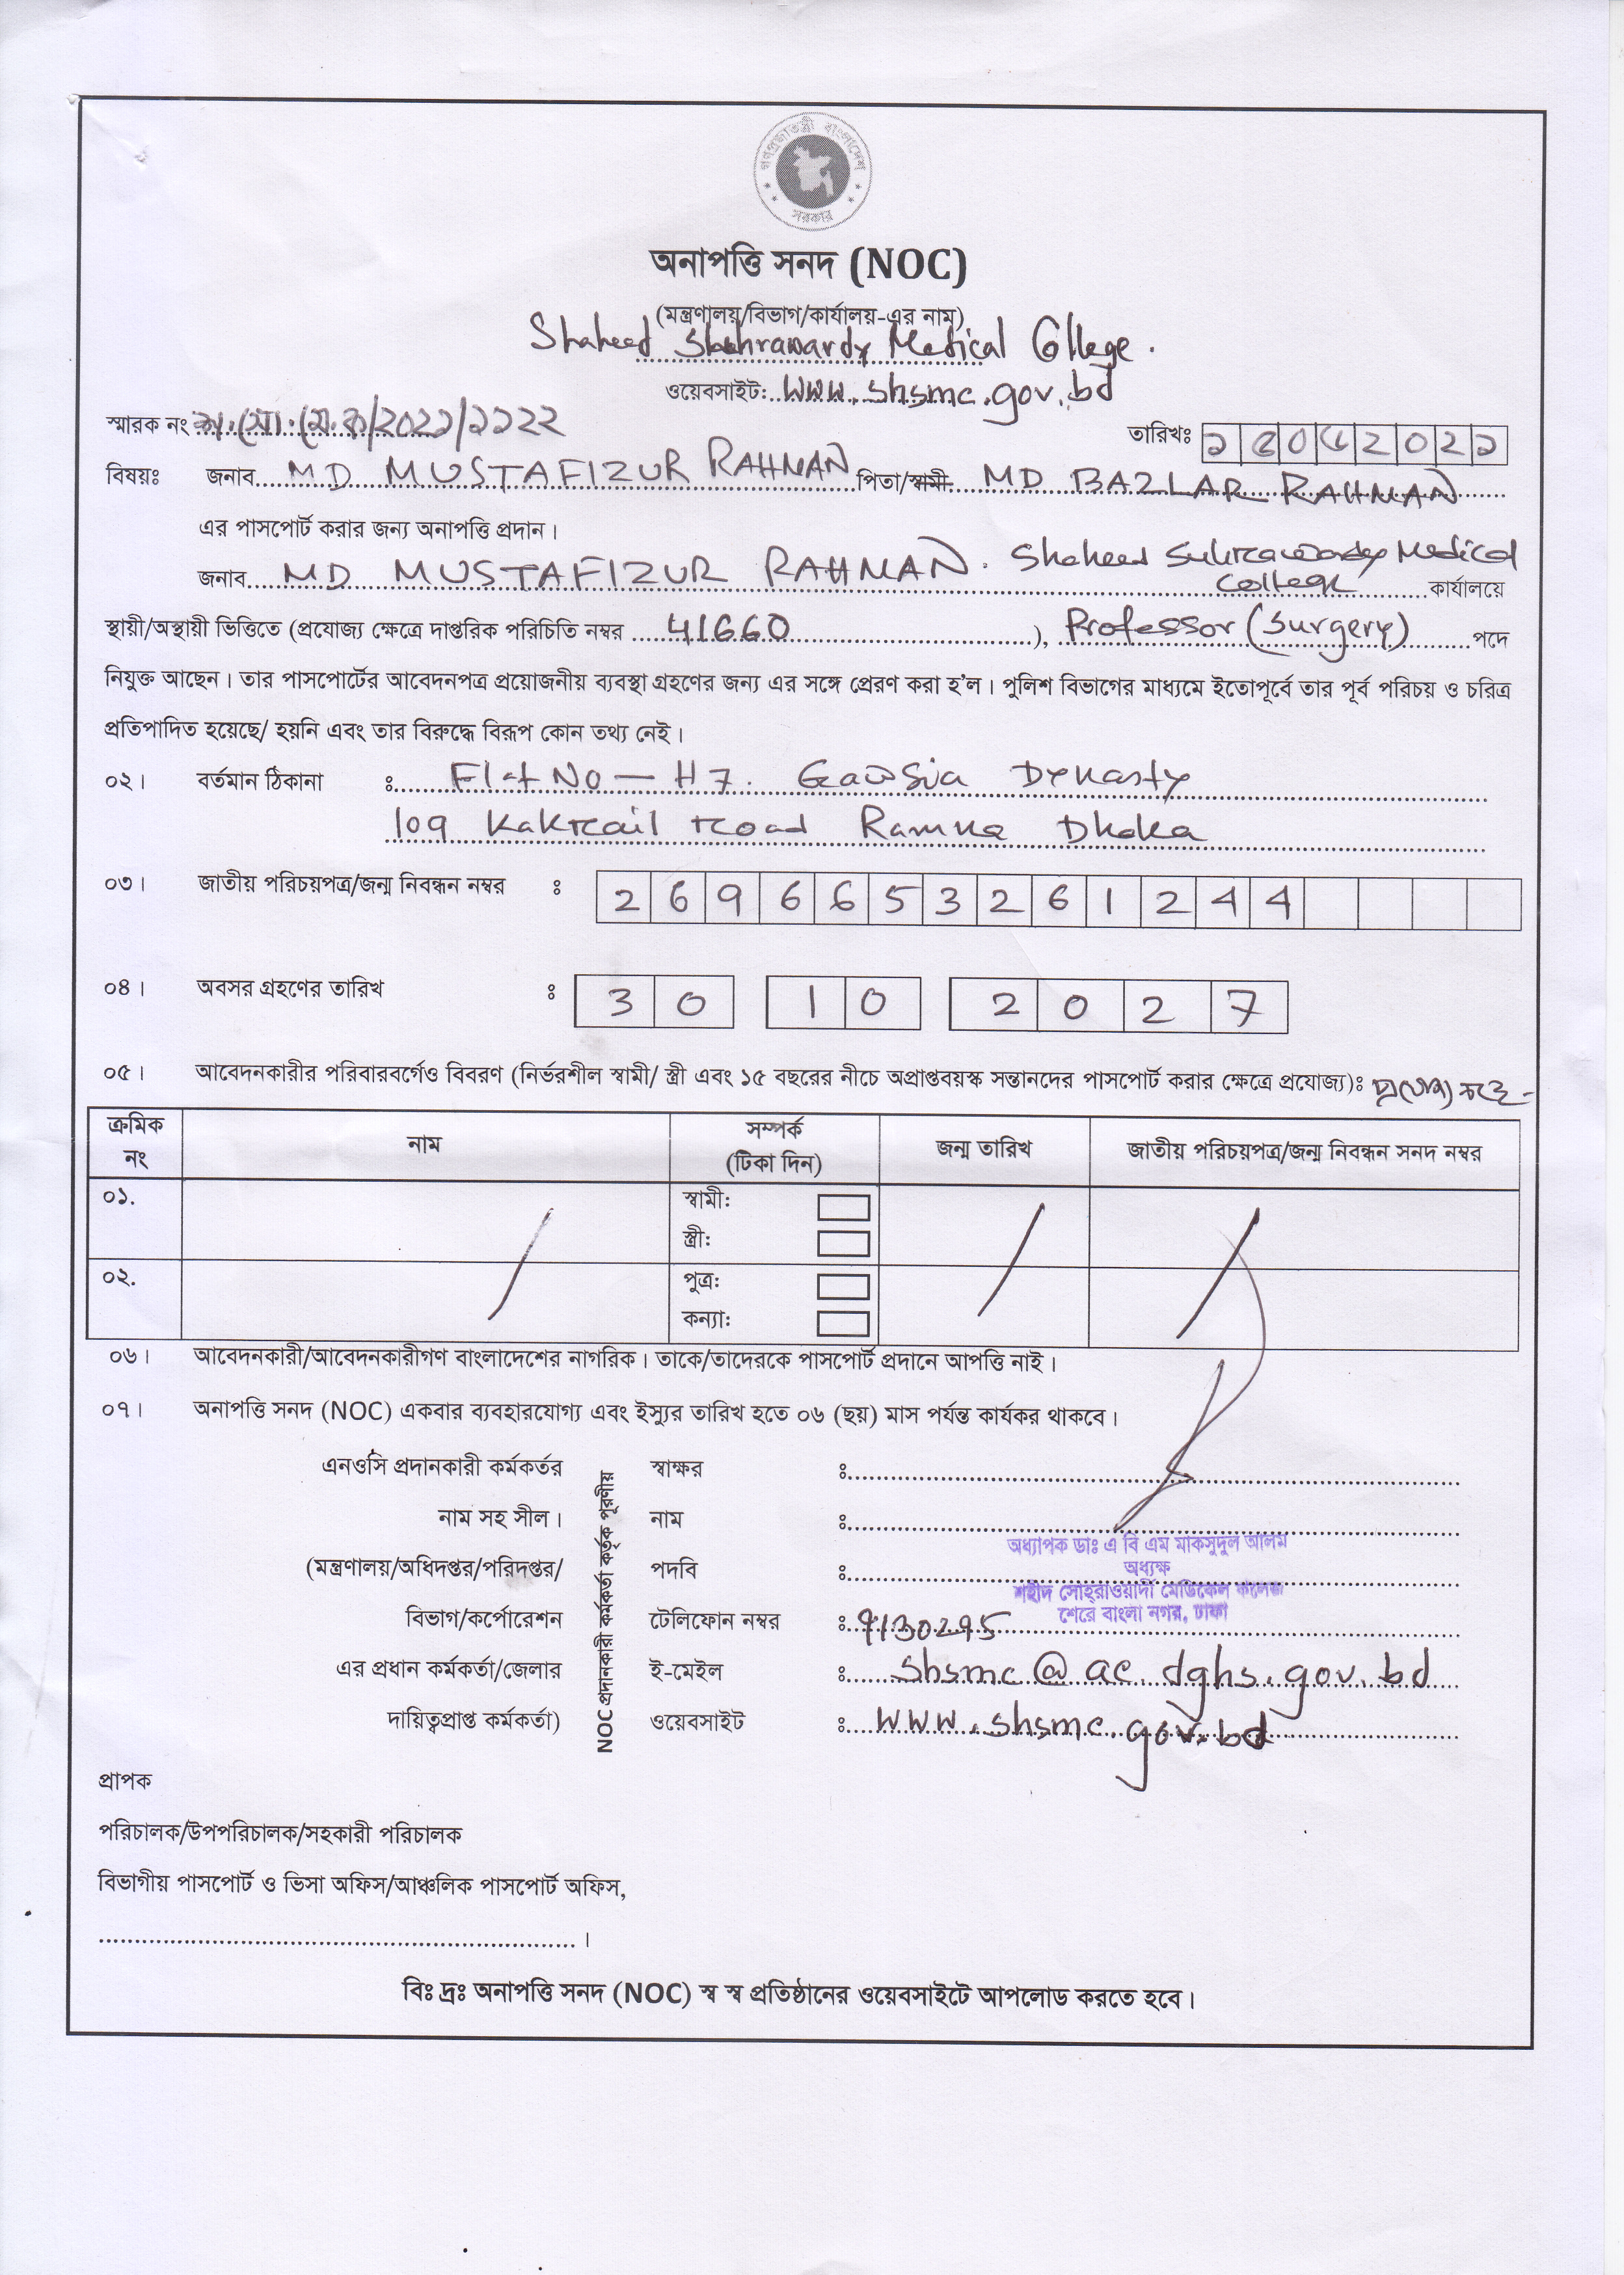 গণপ্রজাতন্ত্রী বাংলাদেশ
সরকার
অনাপত্তি সনদ (NOC)
(মন্ত্রণালয়/বিভাগ/কার্যালয়-এর নাম)
Shaheed Suhrawardy Medical College.
ওয়েবসাইট: www.shsmc.gov.bd
স্মারক নং শ.সো.মে.ক/2021/১১২২
তারিখঃ
বিষয়ঃ জনাব MD MUSTAFIZUR RAHMAN পিতা/স্বামী MD BAZLAR RAHMAN
এর পাসপোর্ট করার জন্য অনাপত্তি প্রদান।
জনাব MD MUSTAFIZUR RAHMAN. Shaheed Suhrawardy Medical College কার্যালয়ে
স্থায়ী/অস্থায়ী ভিত্তিতে (প্রযোজ্য ক্ষেত্রে দাপ্তরিক পরিচিতি নম্বর 41660), Professor (Surgery) পদে
নিযুক্ত আছেন। তার পাসপোর্টের আবেদনপত্র প্রয়োজনীয় ব্যবস্থা গ্রহণের জন্য এর সঙ্গে প্রেরণ করা হ'ল। পুলিশ বিভাগের মাধ্যমে ইতোপূর্বে তার পূর্ব পরিচয় ও চরিত্র
প্রতিপাদিত হয়েছে/ হয়নি এবং তার বিরুদ্ধে বিরূপ কোন তথ্য নেই।
০২। বর্তমান ঠিকানা ঃ Flat No - H7. Gawsia Dynasty
109 Kakrail road Ramna Dhaka
০৩। জাতীয় পরিচয়পত্র/জন্ম নিবন্ধন নম্বর ঃ 2 6 9 6 6 5 3 2 6 1 2 4 4
০৪। অবসর গ্রহণের তারিখ ঃ 3 0 1 0 2 0 2 7
০৫। আবেদনকারীর পরিবারবর্গেও বিবরণ (নির্ভরশীল স্বামী/ স্ত্রী এবং ১৫ বছরের নীচে অপ্রাপ্তবয়স্ক সন্তানদের পাসপোর্ট করার ক্ষেত্রে প্রযোজ্য)ঃ
ক্রমিক নং নাম সম্পর্ক (টিকা দিন) জন্ম তারিখ জাতীয় পরিচয়পত্র/জন্ম নিবন্ধন সনদ নম্বর
০১. স্বামী:
স্ত্রী:
০২. পুত্র:
কন্যা:
০৬। আবেদনকারী/আবেদনকারীগণ বাংলাদেশের নাগরিক। তাকে/তাদেরকে পাসপোর্ট প্রদানে আপত্তি নাই।
০৭। অনাপত্তি সনদ (NOC) একবার ব্যবহারযোগ্য এবং ইস্যুর তারিখ হতে ০৬ (ছয়) মাস পর্যন্ত কার্যকর থাকবে।
এনওসি প্রদানকারী কর্মকর্তর স্বাক্ষর ঃ
নাম সহ সীল। নাম ঃ
অধ্যাপক ডাঃ এ বি এম মাকসুদুল আলম
(মন্ত্রণালয়/অধিদপ্তর/পরিদপ্তর/ পদবি ঃ অধ্যক্ষ
শহীদ সোহ্‌রাওয়ার্দী মেডিকেল কলেজ
শেরে বাংলা নগর, ঢাকা
বিভাগ/কর্পোরেশন টেলিফোন নম্বর ঃ 9130295
এর প্রধান কর্মকর্তা/জেলার ই-মেইল ঃ shsmc@ac.dghs.gov.bd
দায়িত্বপ্রাপ্ত কর্মকর্তা) ওয়েবসাইট ঃ www.shsmc.gov.bd
NOC প্রদানকারী কর্মকর্তা কর্তৃক পূরণীয়
প্রাপক
পরিচালক/উপপরিচালক/সহকারী পরিচালক
বিভাগীয় পাসপোর্ট ও ভিসা অফিস/আঞ্চলিক পাসপোর্ট অফিস,
।
বিঃ দ্রঃ অনাপত্তি সনদ (NOC) স্ব স্ব প্রতিষ্ঠানের ওয়েবসাইটে আপলোড করতে হবে।